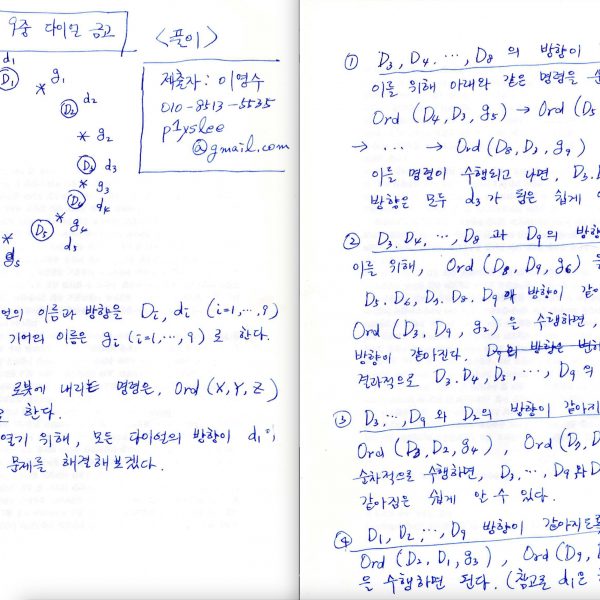 9중 다이얼 금고
<풀이>
제출자 : 이영수
010-8513-5535
p1yslee
@gmail.com
d₁
D₁
* g₁
D₂ d₂
* g₂
d₃
* g₃
d₄
D₅ * g₄
* g₅
얼의 이름과 방향을 Dᵢ, dᵢ (i=1,…,9)
기어의 이름은 gᵢ (i=1,…,9) 로 한다.
로봇에 내리는 명령은, Ord (X, Y, Z)
한다.
열기 위해, 모든 다이얼의 방향이 d₁
문제를 해결해보겠다.
① D₃, D₄, …, D₈ 의 방향이
이를 위해 아래와 같은 명령을
Ord (D₄, D₃, g₅) → Ord (D₅
→ … → Ord (D₈, D₃, g₉)
이들 명령이 수행되고 나면, D₃.
방향은 모두 d₃ 가 됨은 쉽게
② D₃. D₄, …, D₈ 과 D₉ 의 방향
이를 위해, Ord (D₈, D₉, g₆) 을
D₅. D₆, D₇. D₈. D₉ 의 방향이 같아
Ord (D₃, D₉, g₂) 을 수행하면,
방향이 같아진다. D₉의 방향은
결과적으로 D₃. D₄, D₅, …, D₉ 의
③ D₃, …, D₉ 와 D₂의 방향이 같아지
Ord (D₈, D₂, g₄), Ord (D₃, D
순차적으로 수행하면, D₃, …, D₉와 D
같아짐은 쉽게 알 수 있다.
④ D₁, D₂, …, D₉ 방향이 같아지도록
Ord (D₂, D₁, g₃), Ord (D₉, D
을 수행하면 된다. (참고로 d₁은